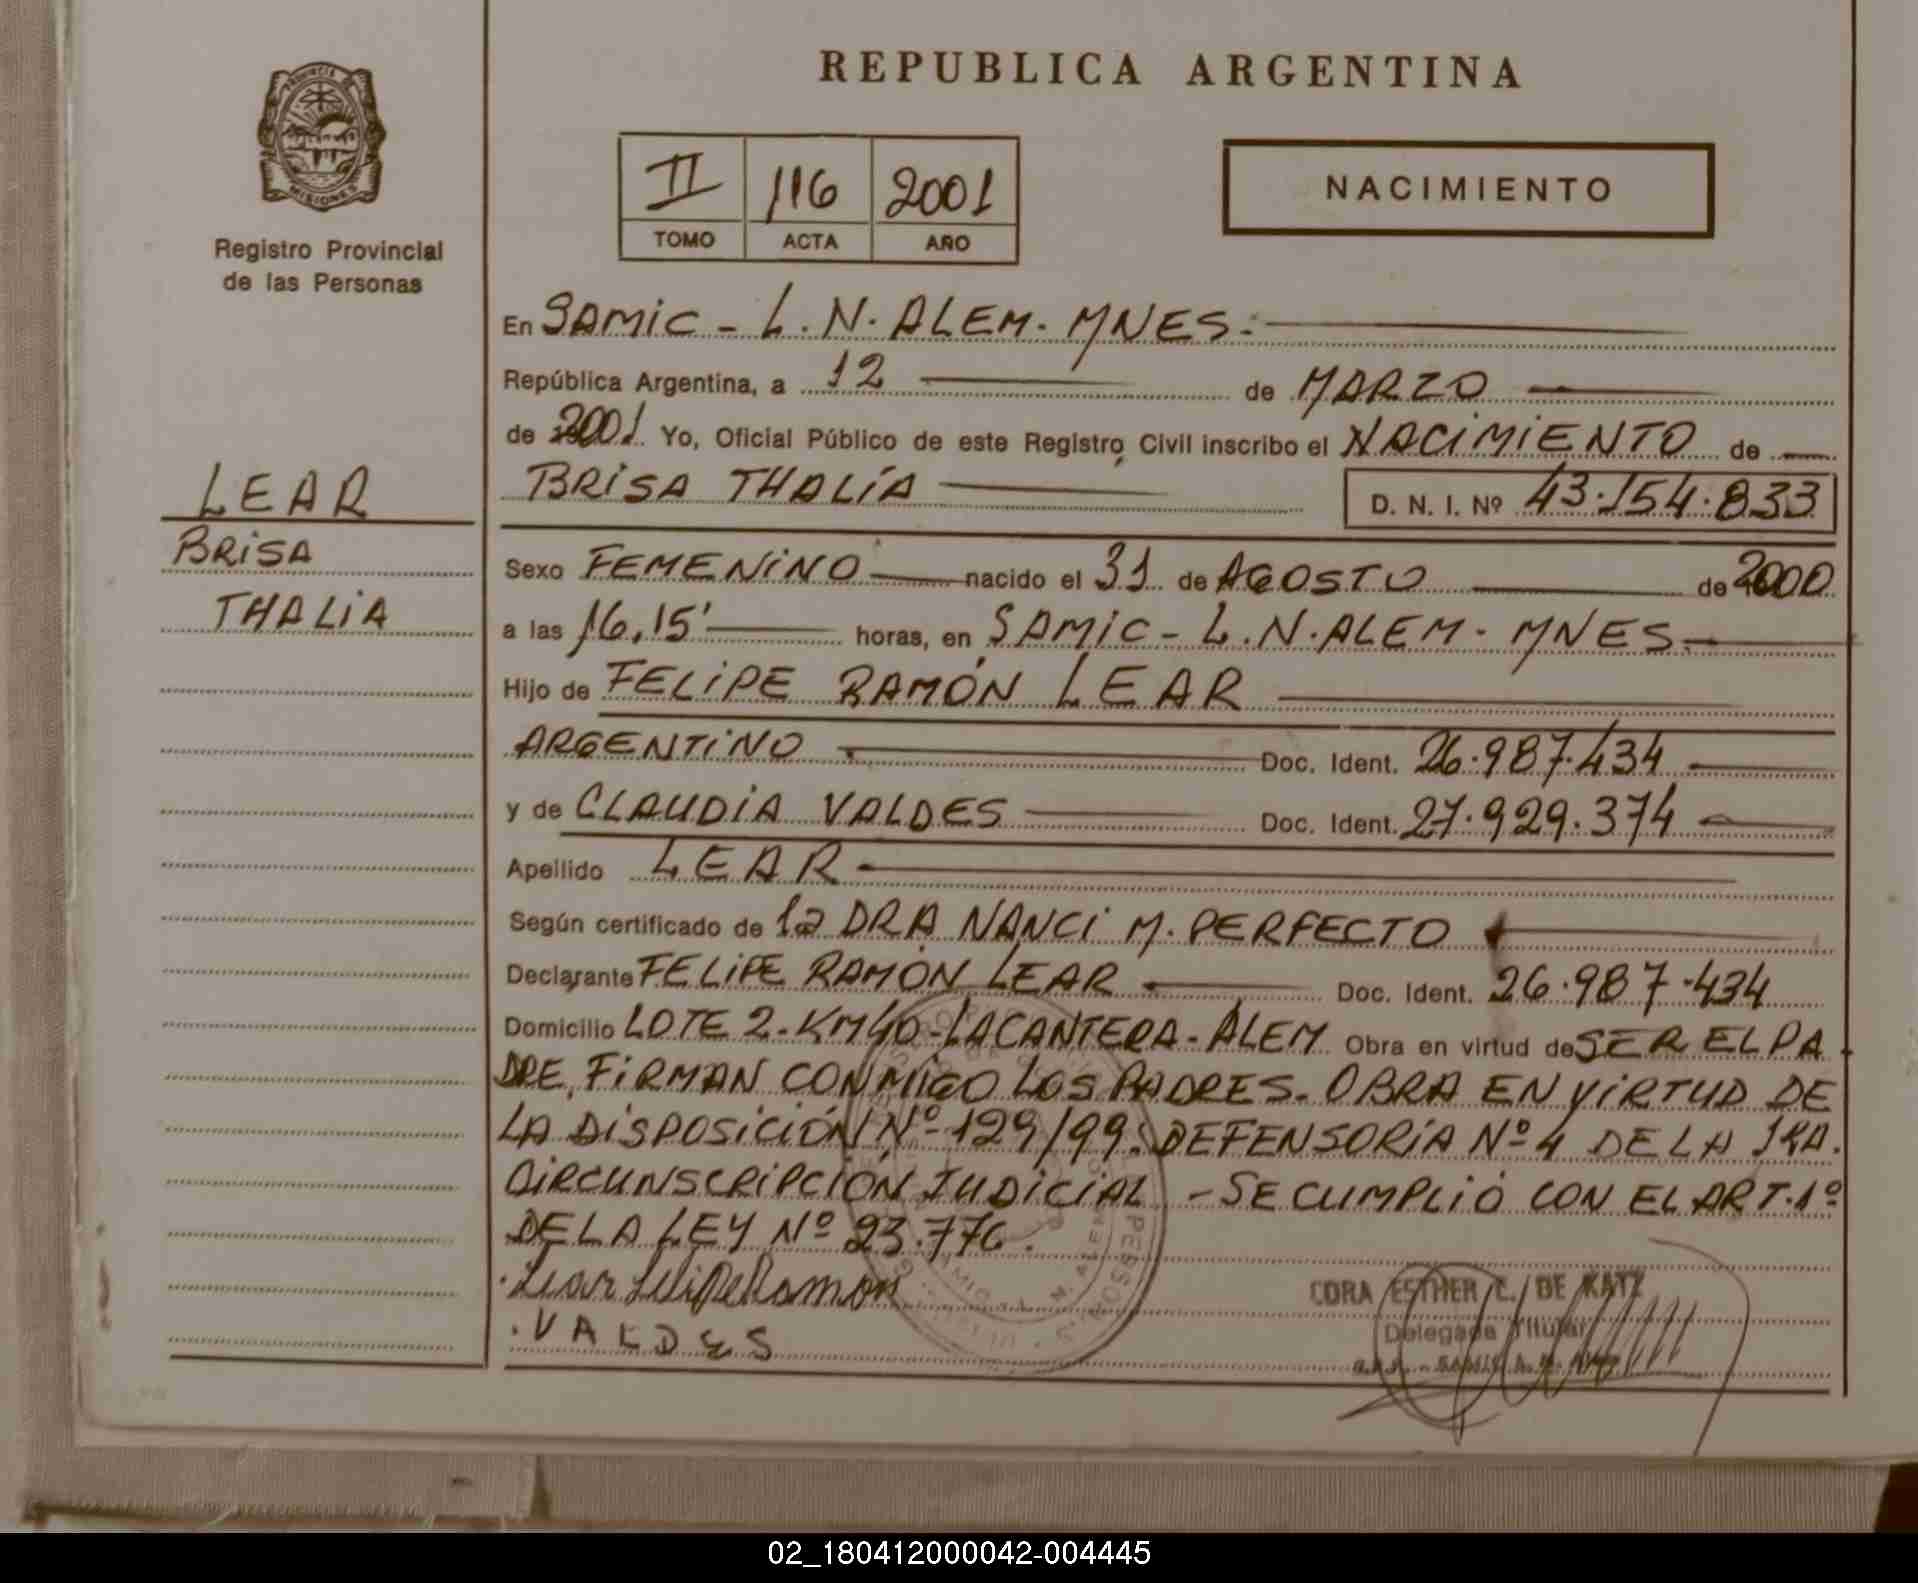 REPUBLICA ARGENTINA
PROVINCIA DE
MISIONES
Registro Provincial
de las Personas
II 116 2001
TOMO ACTA AÑO
NACIMIENTO
En SAMIC - L.N. ALEM. MNES.
República Argentina, a 12 de MARZO
de 2001 Yo, Oficial Público de este Registro Civil inscribo el NACIMIENTO de
BRISA THALÍA
D. N. I. Nº 43.154.833
LEAR
BRISA
THALIA
Sexo FEMENINO nacido el 31 de AGOSTO de 2000
a las 16,15' horas, en SAMIC - L.N. ALEM - MNES.
Hijo de FELIPE RAMÓN LEAR
ARGENTINO Doc. Ident. 26.987.434
y de CLAUDIA VALDES Doc. Ident. 27.929.374
Apellido LEAR
Según certificado de la DRA NANCI M. PERFECTO
Declarante FELIPE RAMÓN LEAR Doc. Ident. 26.987.434
Domicilio LOTE 2 - KM 40 - LA CANTERA - ALEM Obra en virtud de SER EL PA
DRE, FIRMAN CONMIGO LOS PADRES. OBRA EN VIRTUD DE
LA DISPOSICIÓN Nº 129/99. DEFENSORÍA Nº 4 DE LA 1RA.
CIRCUNSCRIPCIÓN JUDICIAL - SE CUMPLIÓ CON EL ART. 1º
DE LA LEY Nº 23.776.
Lear Felipe Ramon
VALDES
CORA ESTHER C. DE KATZ
Delegada Titular
02_180412000042-004445